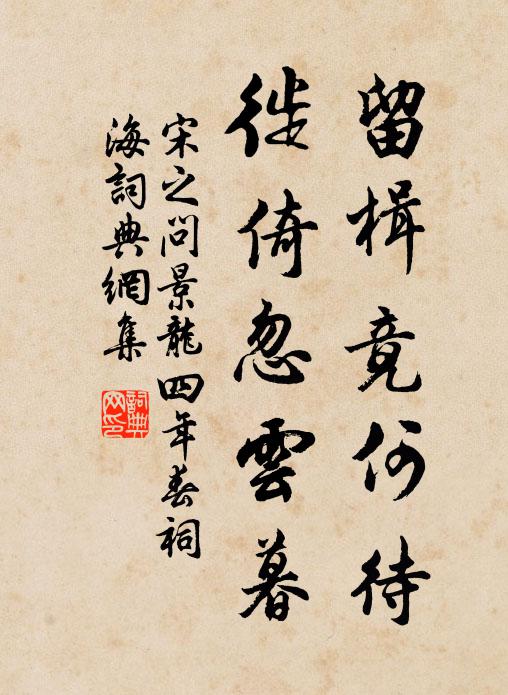 留楫竟何待
徙倚忽雲暮
宋之问景龍四年春祠
海詞典網集
詞典
网印